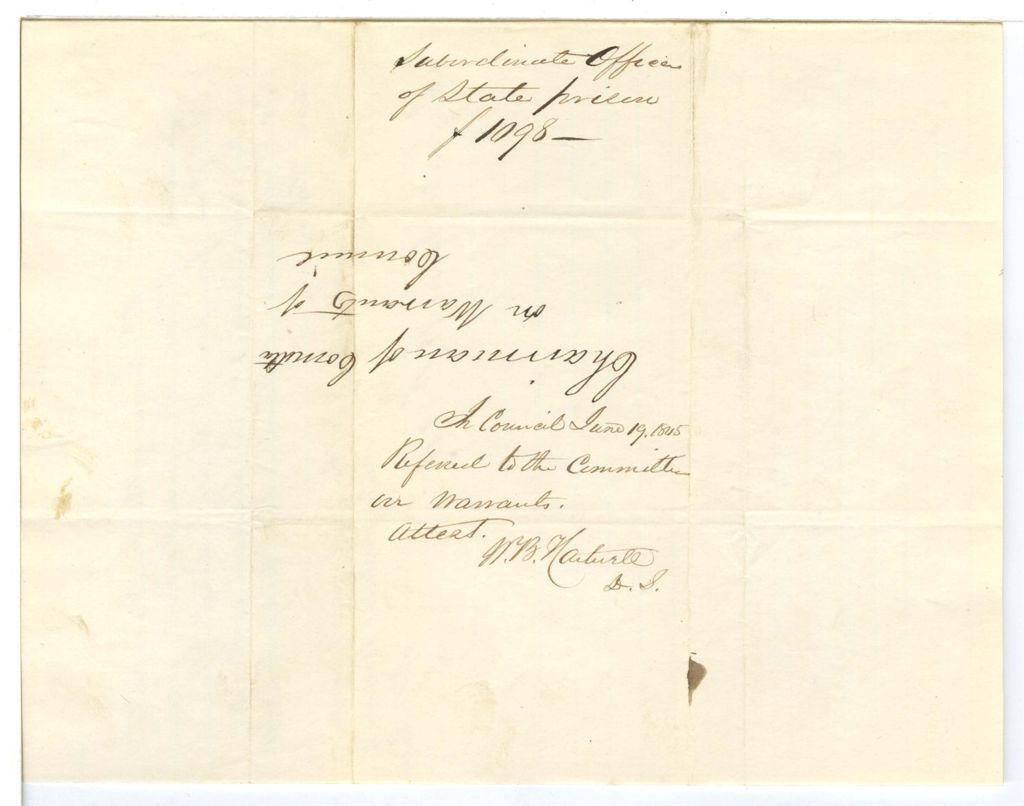 Subordinate Officer
of State prison
$ 1098 —
Chairman of Comtte
on Warrants of
Council
In Council June 19. 1845
Referred to the Committee
on Warrants.
Attest.
W. B. Hartwell
D. S.